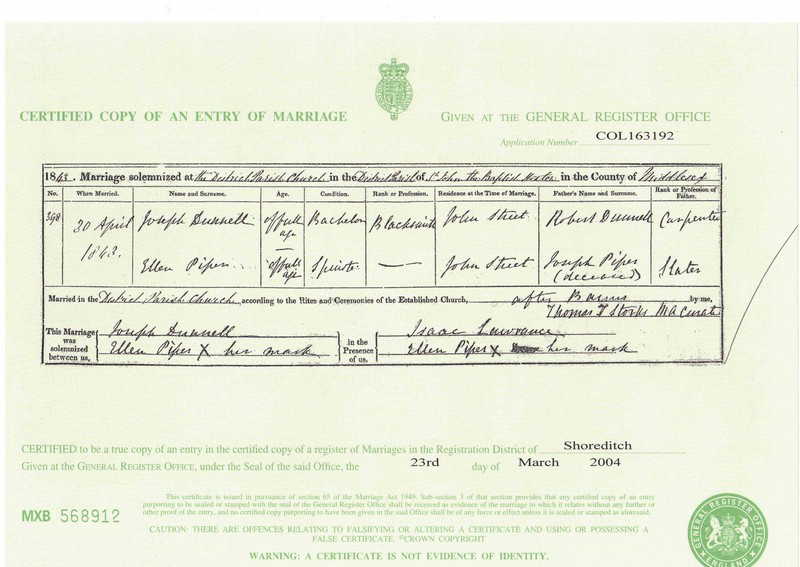 CERTIFIED COPY OF AN ENTRY OF MARRIAGE
GIVEN AT THE GENERAL REGISTER OFFICE
Application Number COL163192
1843. Marriage solemnized at the District Parish Church in the District Parish of St John the Baptist Hoxton in the County of Middlesex
No. When Married. Name and Surname. Age. Condition. Rank or Profession. Residence at the Time of Marriage. Father's Name and Surname. Rank or Profession of Father.
398 30 April 1843. Joseph Dunnell of full age Bachelor Blacksmith John Street Robert Dunnell Carpenter
Ellen Piper of full age Spinster — John Street Joseph Piper (deceased) Slater
Married in the District Parish Church according to the Rites and Ceremonies of the Established Church, after Banns by me,
Thomas F Storks MA Curate
This Marriage was solemnized between us, Joseph Dunnell
Ellen Piper X her mark
in the Presence of us. Isaac Lawrance
Ellen Piper X her mark
CERTIFIED to be a true copy of an entry in the certified copy of a register of Marriages in the Registration District of Shoreditch
Given at the GENERAL REGISTER OFFICE, under the Seal of the said Office, the 23rd day of March 2004
MXB 568912
This certificate is issued in pursuance of section 65 of the Marriage Act 1949. Sub-section 3 of that section provides that any certified copy of an entry
purporting to be sealed or stamped with the seal of the General Register Office shall be received as evidence of the marriage to which it relates without any further or
other proof of the entry, and no certified copy purporting to have been given in the said Office shall be of any force or effect unless it is sealed or stamped as aforesaid.
CAUTION: THERE ARE OFFENCES RELATING TO FALSIFYING OR ALTERING A CERTIFICATE AND USING OR POSSESSING A
FALSE CERTIFICATE. ©CROWN COPYRIGHT
WARNING: A CERTIFICATE IS NOT EVIDENCE OF IDENTITY.
GENERAL REGISTER OFFICE
ENGLAND